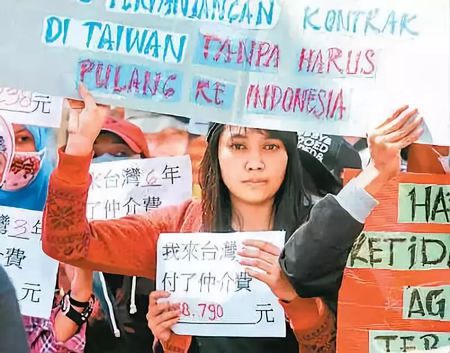 PERPANJANGAN KONTRAK
DI TAIWAN TANPA HARUS
PULANG KE INDONESIA
元
來台灣 6 年
了仲介費
灣 3 年
仲介費
元
我來台灣
付了仲介費
8.790 元
HA
KETIDA
AG
TER